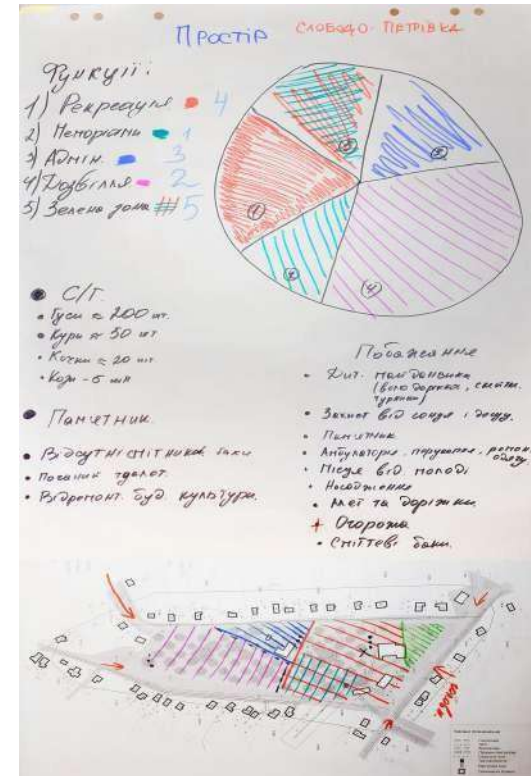 Простір
Слободо-Петрівка
Функції:
1) Рекреація 4
2) Меморіали 1
3) Адмін. 3
4) Дозвілля 2
5) Зелена зона 5
5
3
1
2
4
С/Г.
Гуси ≈ 200 шт.
Кури ≈ 50 шт
Качки ≈ 20 шт.
Кози - 5 шт
Памʼятник.
Відсутні смітники баки
Поганий туалет.
Відремонт. буд. культури.
Побажання
Дит. майданчика
Захист від сонця і дощу.
Памʼятник
Амбулаторія, перукарня, ремонт одягу
Місце від молоді
Насадження
Алеї та доріжки
+ Огорожа
Сміттєві баки.